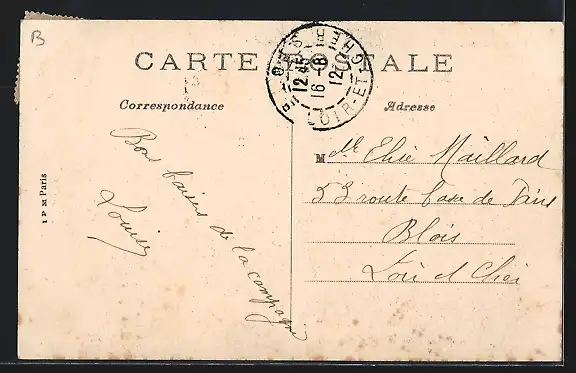 B
CARTE POSTALE
12 45
16 - 8
12
LOIR-ET-CHER
Correspondance
Adresse
Bons baisers de la campagne
Louise
Mlle Elise Maillard
53 route basse de Paris
Blois
Loir et Cher
I P M Paris